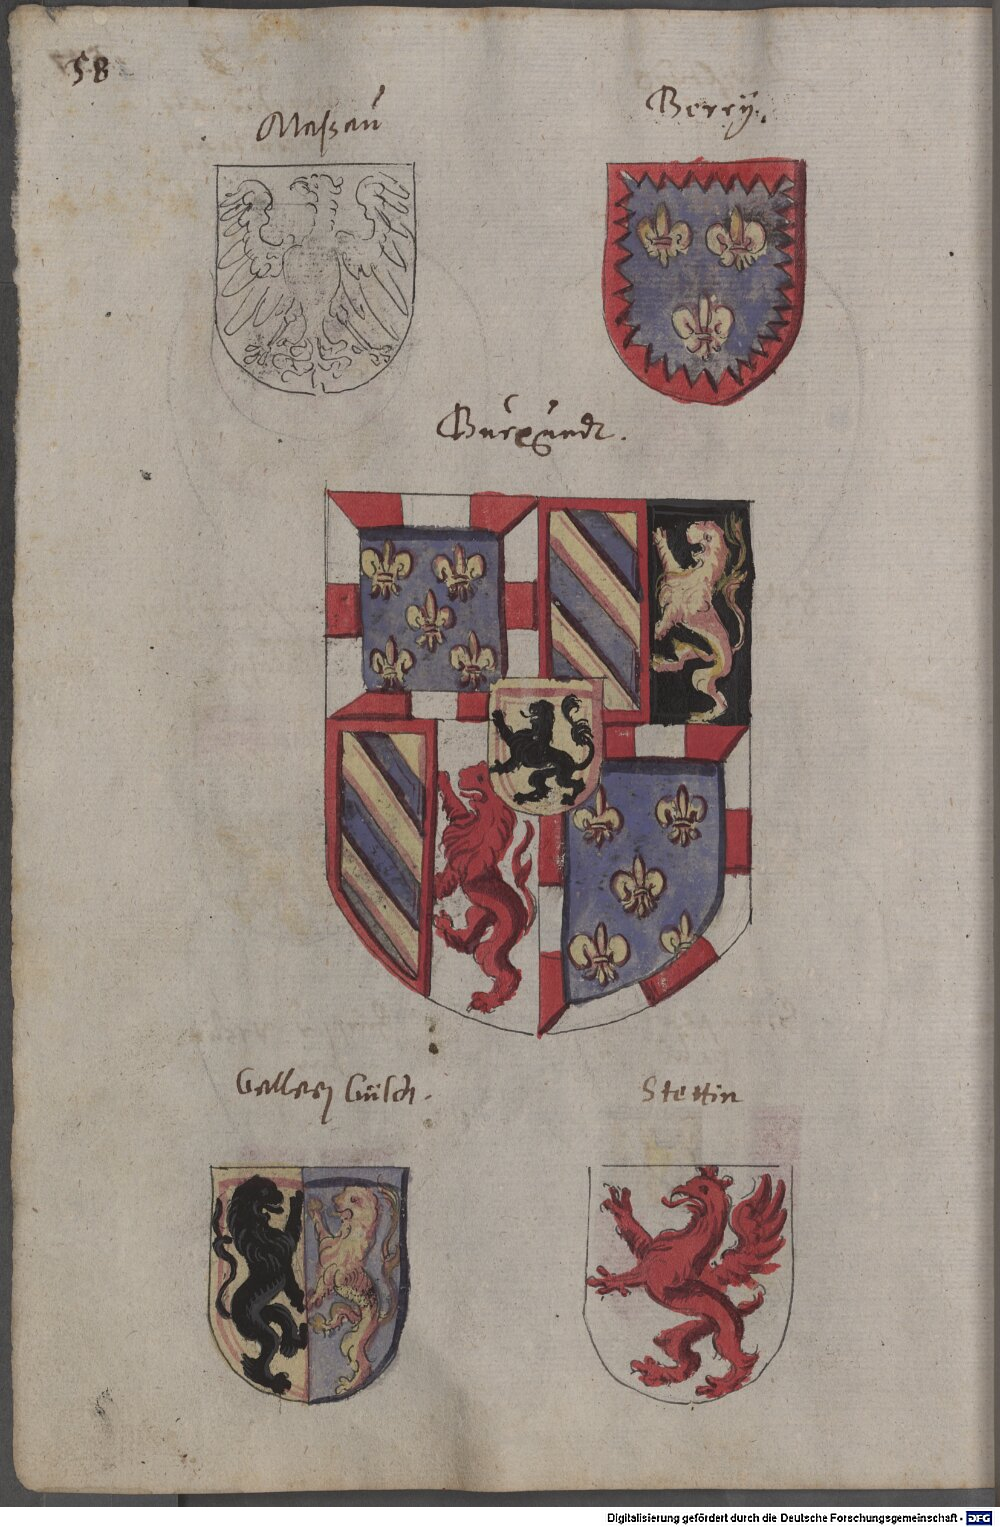 58
Maßaů
Berrÿ.
Bůrgůndt.
Geller Gülch.
Stettin
Digitalisierung gefördert durch die Deutsche Forschungsgemeinschaft - DFG